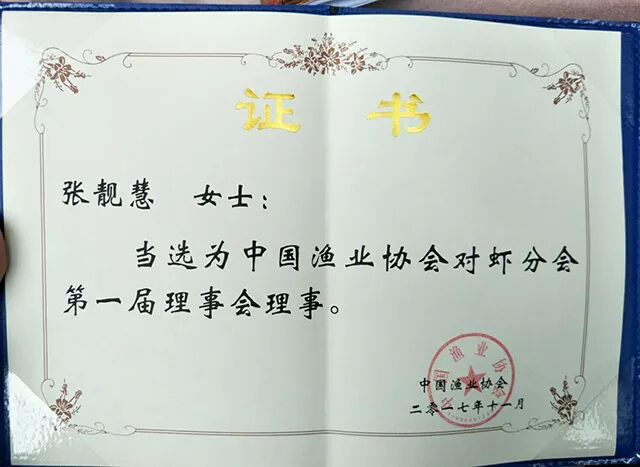 证 书
张靓慧 女士：
当选为中国渔业协会对虾分会
第一届理事会理事。
中国渔业协会
中国渔业协会
二〇一七年十一月